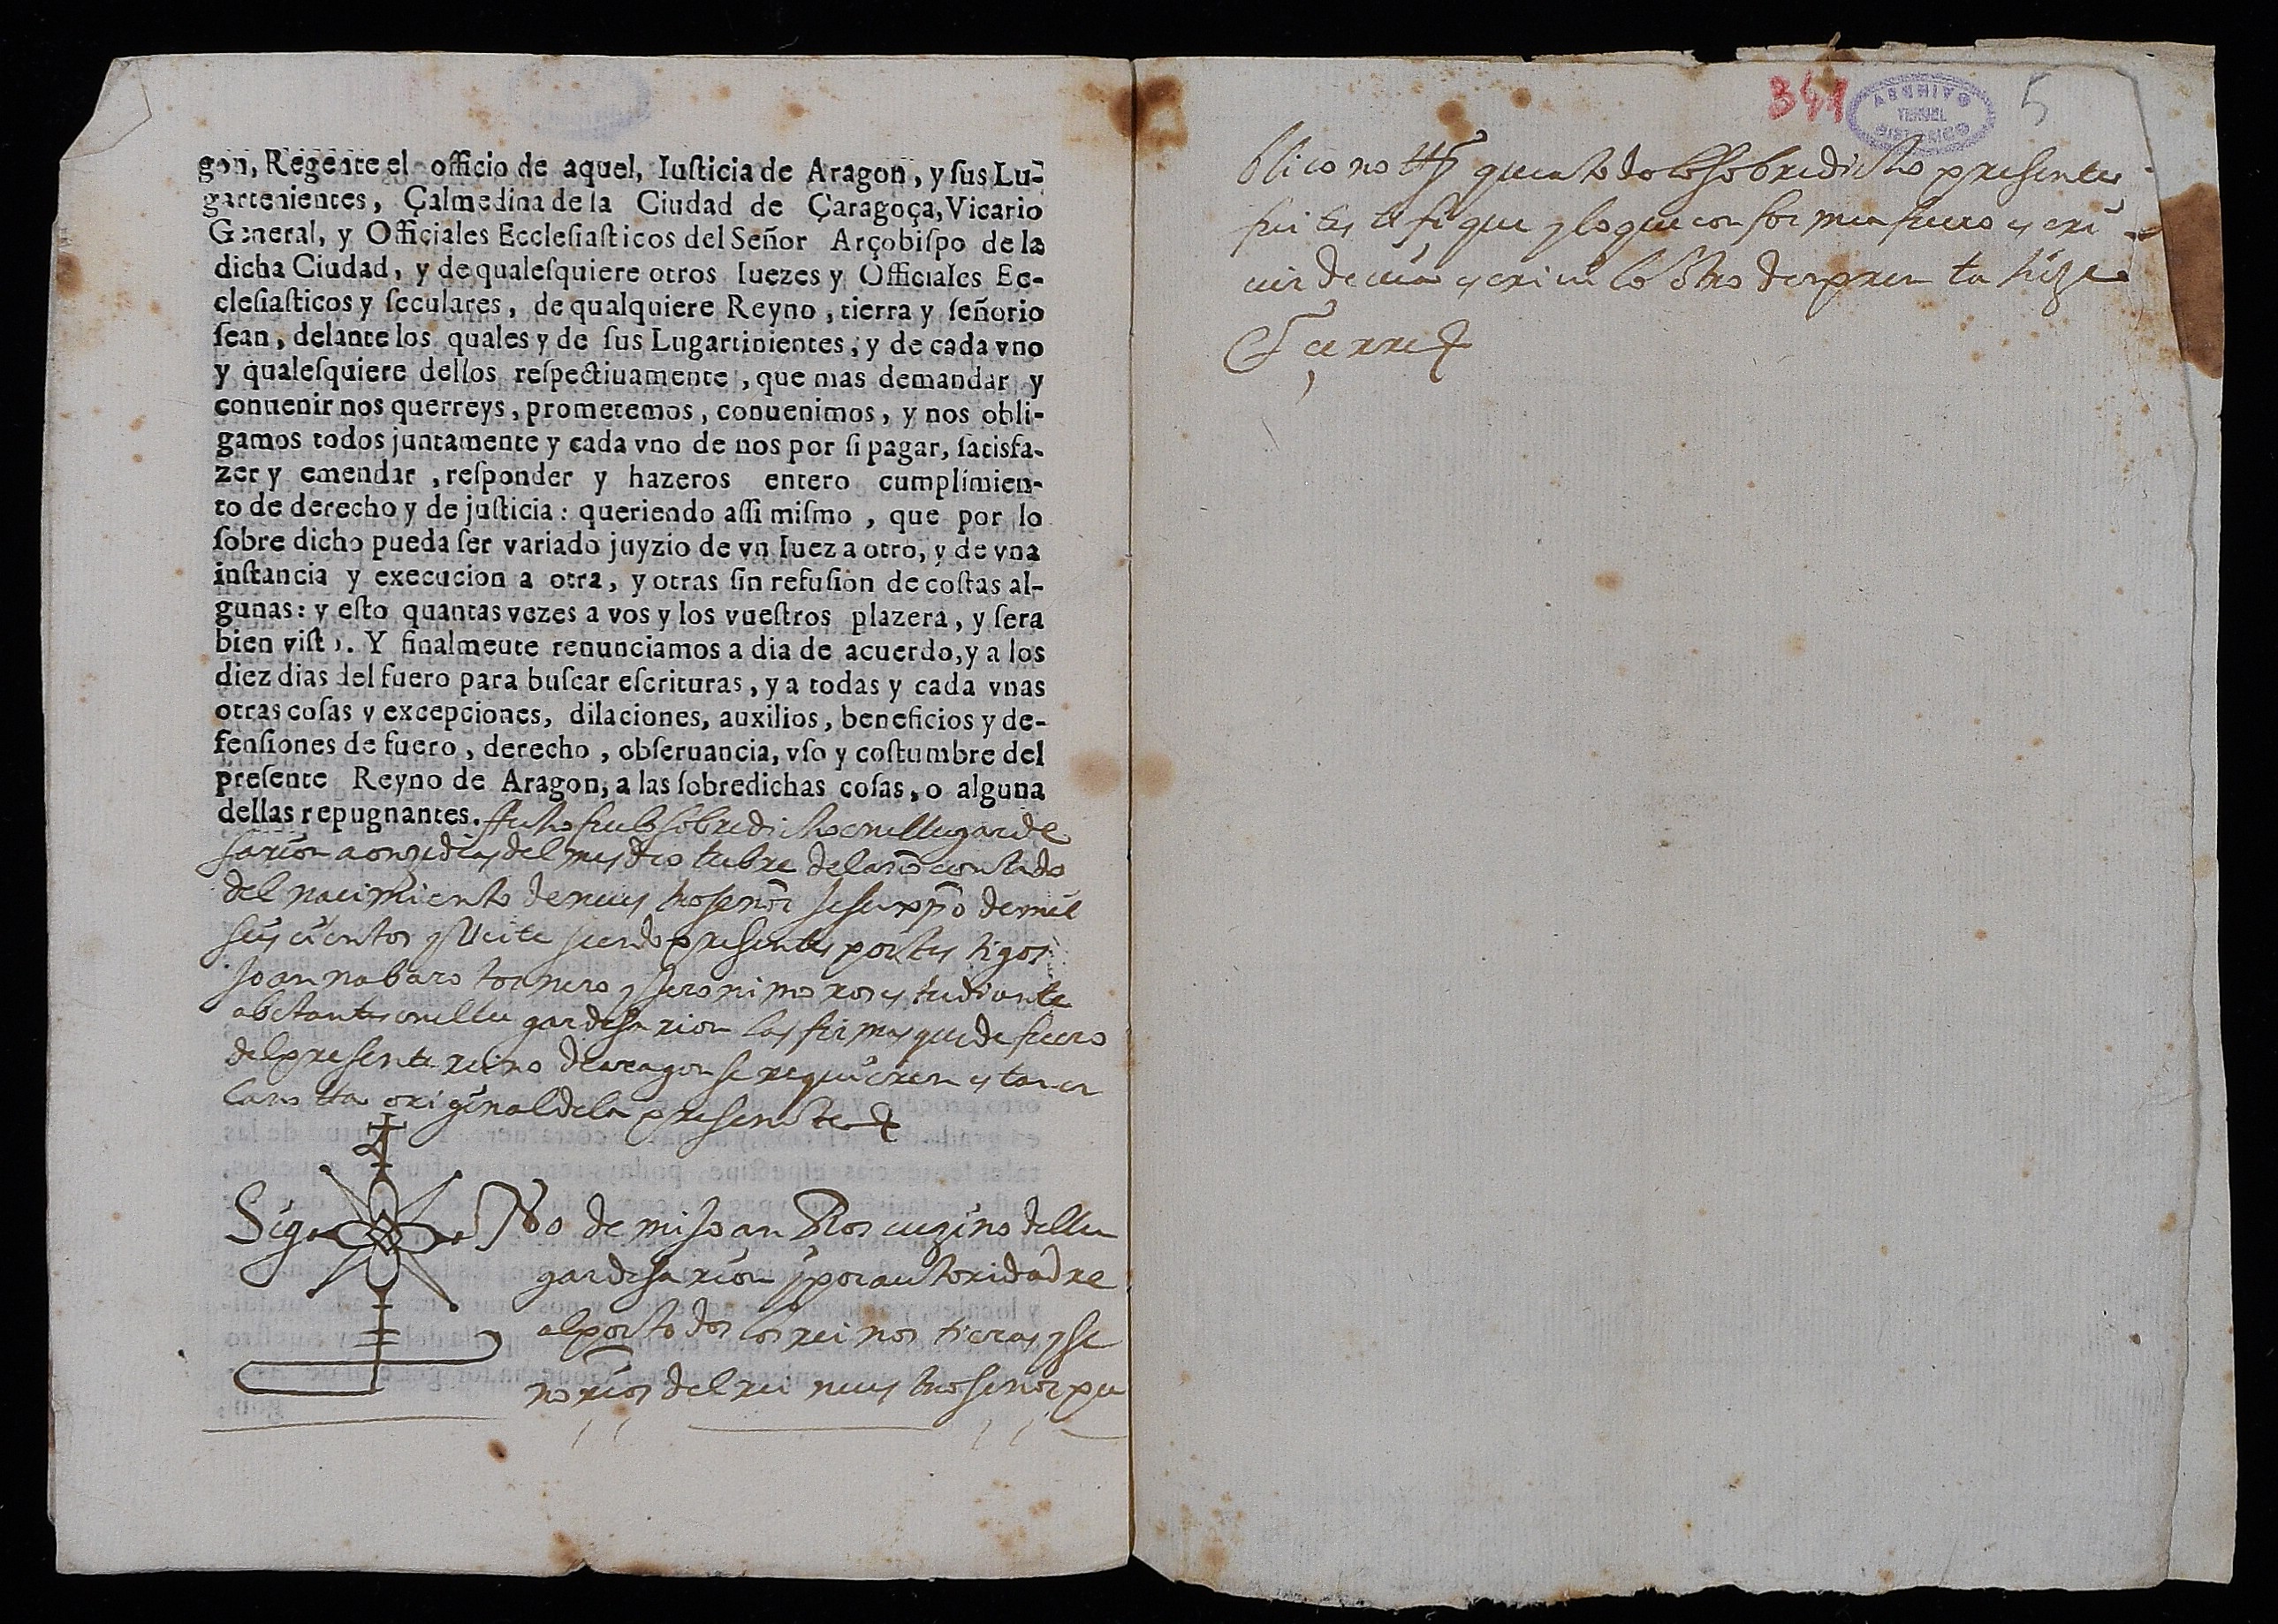 gon, Regente el officio de aquel, Iuſticia de Aragon, y ſus Lu-
gartenientes, Çalmedina de la Ciudad de Çaragoça, Vicario
General, y Officiales Eccleſiaſticos del Señor Arçobiſpo de la
dicha Ciudad, y de qualeſquiere otros Iuezes y Officiales Ec-
cleſiaſticos y ſeculares, de qualquiere Reyno, tierra y ſeñorio
ſean, delante los quales y de ſus Lugartinientes, y de cada vno
y qualeſquiere dellos reſpectiuamente, que mas demandar y
conuenir nos querreys, prometemos, conuenimos, y nos obli-
gamos todos juntamente y cada vno de nos por ſi pagar, ſatisfa-
zer y emendar, reſponder y hazeros entero cumplimien-
to de derecho y de juſticia: queriendo aſſi miſmo, que por lo
ſobre dicho pueda ſer variado juyzio de vn Iuez a otro, y de vna
inſtancia y execucion a otra, y otras ſin refuſion de coſtas al-
gunas: y eſto quantas vezes a vos y los vueſtros plazera, y ſera
bien viſto. Y finalmente renunciamos a dia de acuerdo, y a los
diez dias del fuero para buſcar eſcrituras, y a todas y cada vnas
otras coſas y excepciones, dilaciones, auxilios, beneficios y de-
fenſiones de fuero, derecho, obſeruancia, vſo y coſtumbre del
preſente Reyno de Aragon, a las ſobredichas coſas, o alguna
dellas repugnantes. ffecho fue lo sobredicho en el lugar de
sarion a onze dias del mes de otubre del año contado
del nacimiento de nuestro señor Jesu xpo de mil
seis cientos y siendo presentes por testigos
Joan nabaro tornero y Jeronimo ros estudiante
abitantes en el lugar de sarion las firmas que de fuero
del presente reino de aragon se requieren estan en
la notta original de la presente
Sig No de mi Joan Ros vezino del lu
gar de sarion y por autoridad re
al por todos los reinos tieras y se
ñorios del rei nuestro señor pu
341
5
ARCHIVO
TERUEL
HISTORICO
blico notto que a todo lo sobredicho presente
fui y lo que conforme a fuero escri
uir deuia escriui lo otro de emprenta hize
Et cerre